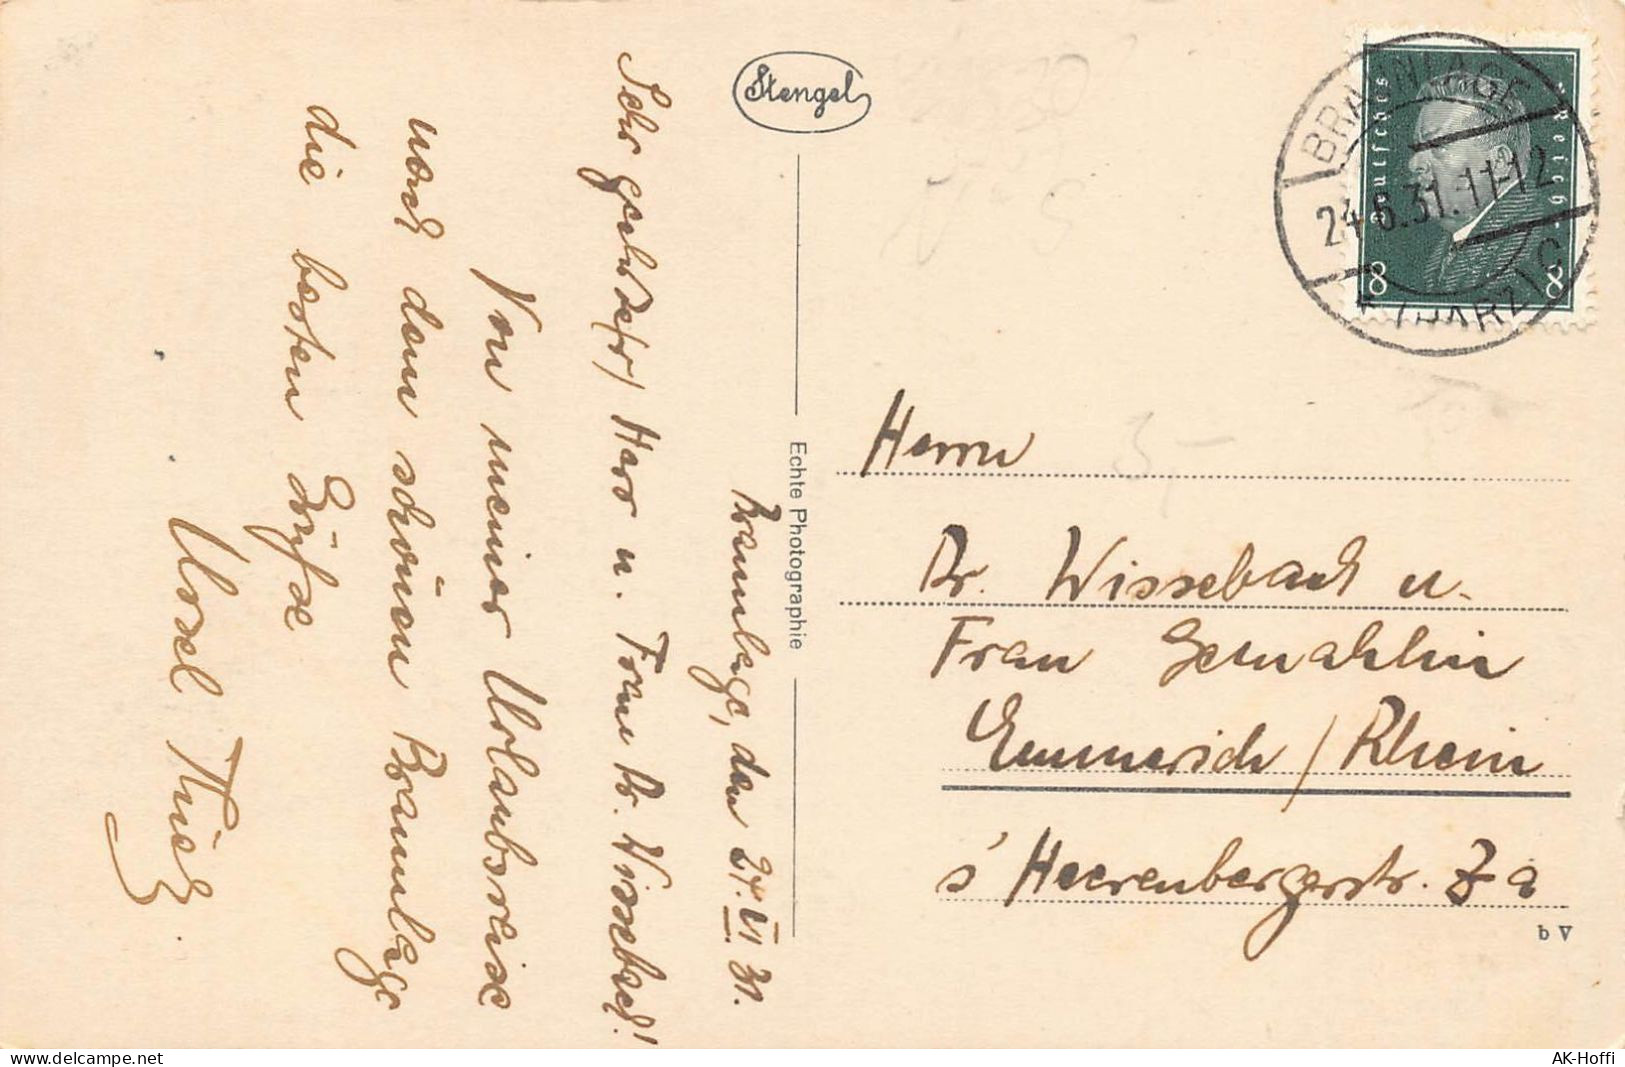 Stengel
Echte Photographie
Braunlage, den 24.VI 31.
Sehr geehrte(r) Herr u. Frau Dr. Wissebach!
Von meiner Urlaubsreise
nach dem schönen Braunlage
die besten Grüße
Ursel
Deutsches Reich
8 8
BRAUNLAGE
24.6.31.11-12
(HARZ) C
Herrn
Dr. Wissebach u.
Frau Gemahlin
Emmerich / Rhein
s' Heerenbergerstr. a
b V
www.delcampe.net
AK-Hoffi